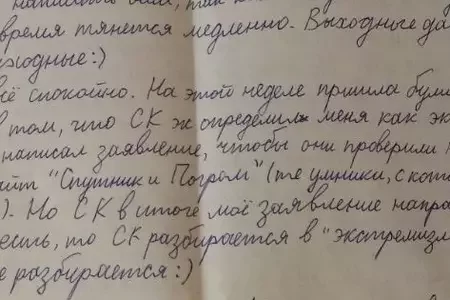 время тянется медленно. Выходные да
ходные:)
всё спокойно. На этой неделе пришла
в том, что СК же определил меня как эк
написал заявление, чтобы они проверили
айт "Спутник и Погром" (те умники, с кото
). Но СК в итоге моё заявление напра
есть, то СК разбирается в "экстремизм
е разбирается:)